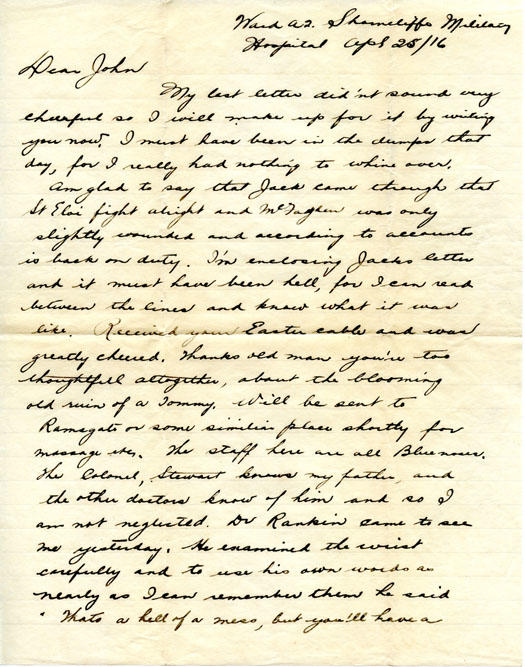 Ward A2. Shorncliffe Military
Hospital Apl 25/16
Dear John
My last letter did'nt sound very
cheerful so I will make up for it by writing
you now. I must have been in the dumps that
day, for I really had nothing to whine over.
Am glad to say that Jack came through that
St Eloi fight alright and McFaghen was only
slightly wounded and according to accounts
is back on duty. I'm enclosing Jacks letter
and it must have been hell, for I can read
between the lines and know what it was
like. Received your Easter cable and was
greatly cheered. Thanks old man you're too
thoughtfull altogether, about the blooming
old ruin of a Tommy. Will be sent to
Ramsgate or some similar place shortly for
massage etc. The staff here are all Bluenoses.
The Colonel, Stewart knows my father, and
the other doctors know of him and so I
am not neglected. Dr Rankin came to see
me yesterday. He examined the wrist
carefully and to use his own words as
nearly as I can remember them he said
" Thats a hell of a mess, but you'll have a